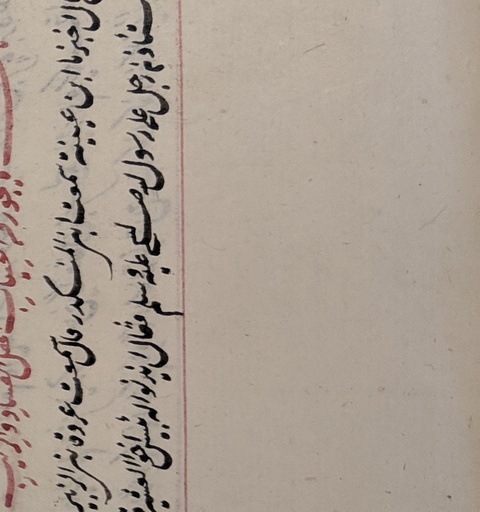 يجوز في اغتياب اهل الفساد والريب
ال اخبرنا ابن عيينة سمعت ابن المنكدر قال سمعت عروة بن الزبير
ستأذن رجل على رسول الله صلى الله عليه وسلم فقال ايذنوا له بئيس اخوا العشيرة